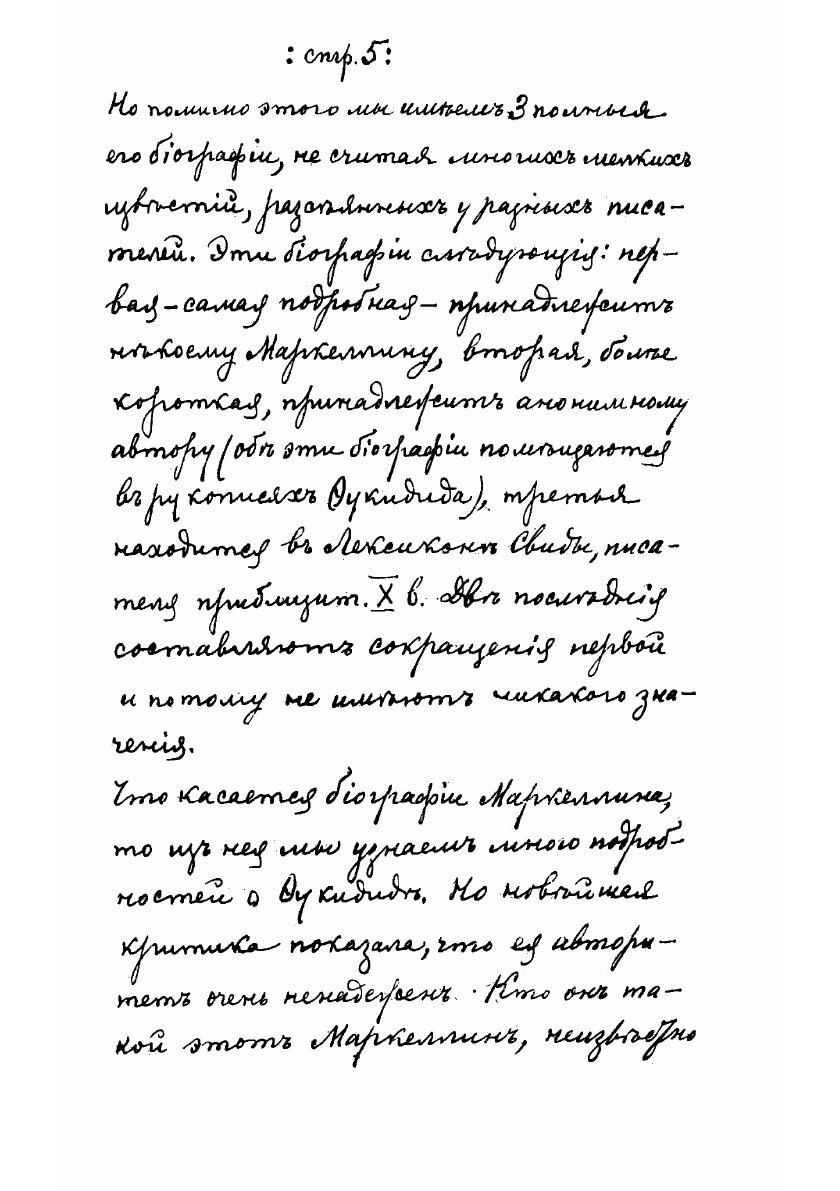 : стр. 5:
Но помимо этого мы имѣемъ 3 полныя
его бiографiи, не считая многихъ мелкихъ
извѣстiй, разсѣянныхъ у разныхъ писа-
телей. Эти бiографiи слѣдующiя: пер-
вая – самая подробная – принадлежитъ
нѣкоему Маркеллину, вторая, болѣе
короткая, принадлежитъ анонимному
автору (обѣ эти бiографiи помѣщаются
въ рукописяхъ Ѳукидида), третья
находится въ Лексиконѣ Свиды, писа-
теля приблизит. X в. Двѣ послѣднiя
составляютъ сокращенiя первой
и потому не имѣютъ никакого зна-
ченiя.
Что касается бiографiи Маркеллина,
то изъ нея мы узнаемъ много подроб-
ностей о Ѳукидидѣ. Но новѣйшая
критика показала, что ея автори-
тетъ очень ненадеженъ. Кто онъ та-
кой этотъ Маркеллинъ, неизвѣстно